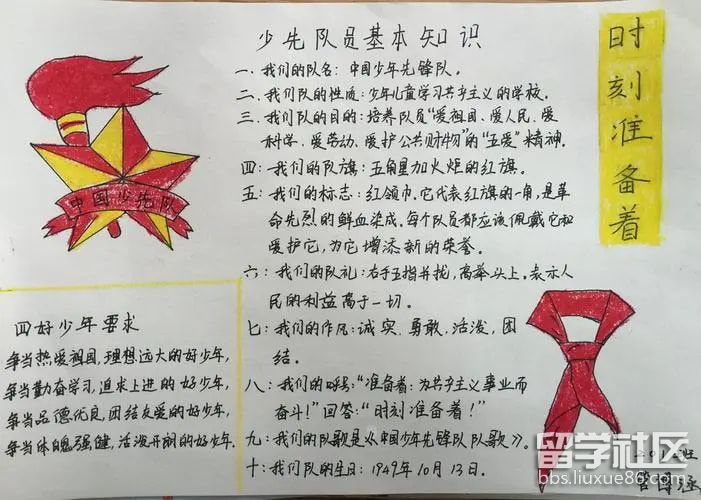 少先队员基本知识
一、我们的队名：中国少年先锋队。
二、我们队的性质：少年儿童学习共产主义的学校。
三、我们队的目的：培养队员“爱祖国、爱人民、爱
科学、爱劳动、爱护公共财物”的“五爱”精神。
四：我们的队旗：五角星加火炬的红旗。
五：我们的标志：红领巾。它代表红旗的一角，是革
命先烈的鲜血染成。每个队员都应该佩戴它和
爱护它，为它增添新的荣誉。
六：我们的队礼：右手五指并拢，高举头上。表示人
民的利益高于一切。
七：我们的作风：诚实、勇敢、活泼、团
结。
八：我们的呼号：“准备着：为共产主义事业而
奋斗！”回答：“时刻准备着！”
九：我们的队歌是《中国少年先锋队队歌》。
十：我们队的生日：1949年10月13日。
时刻准备着
中国少先队
四好少年要求
争当热爱祖国，理想远大的好少年，
争当勤奋学习，追求上进的好少年，
争当品德优良，团结友爱的好少年，
争当体魄强健，活泼开朗的好少年.
留学社区
bbs.liuxue86.com